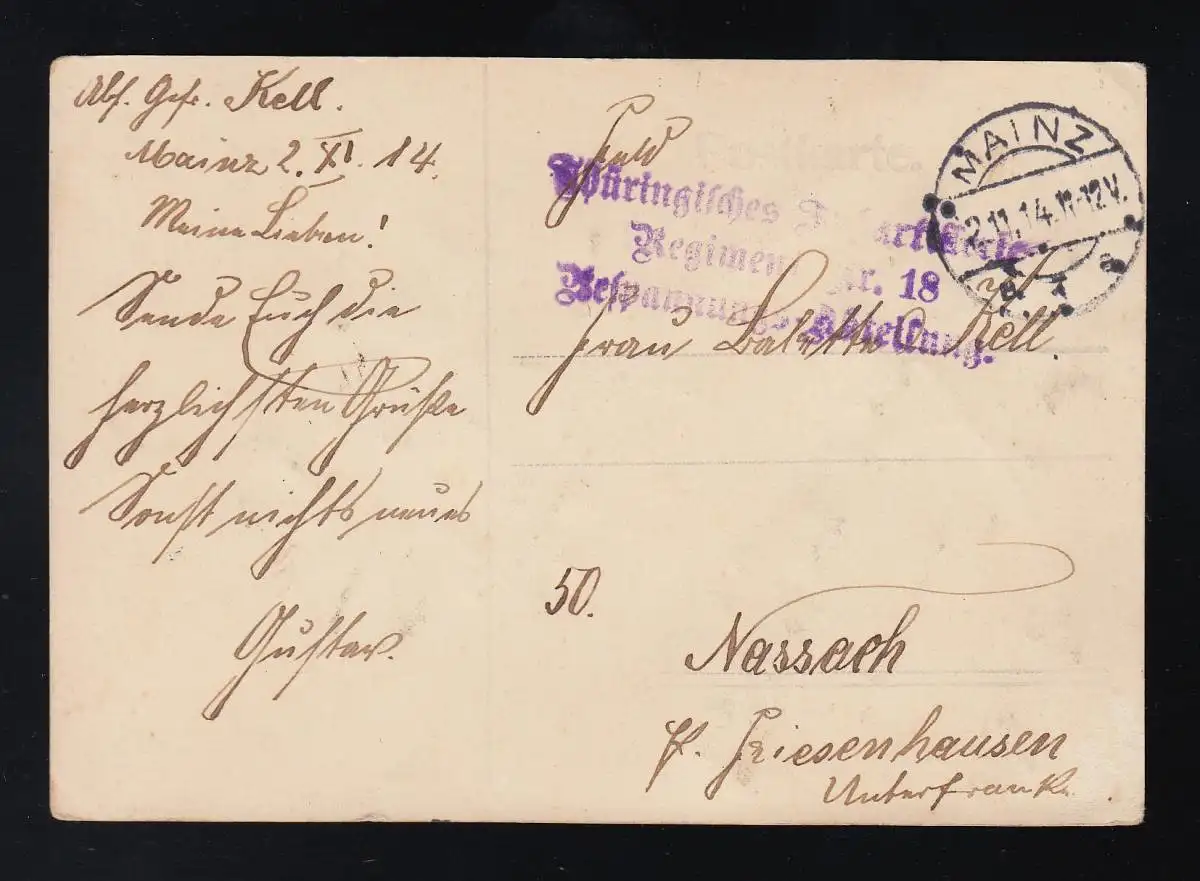 Abs. Gefr. Kell.
Mainz 2. XI. 14.
Meine Lieben!
Sende Euch die
herzlichsten Grüße
Sonst nichts neues
Gustav.
Feld
Postkarte.
Thüringisches
Regiment Nr. 18
Bespannungs-Abteilung.
MAINZ
2.11.14.11-12V.
Frau Babette Kell.
50.
Nassach
P. Friesenhausen
Unterfranken